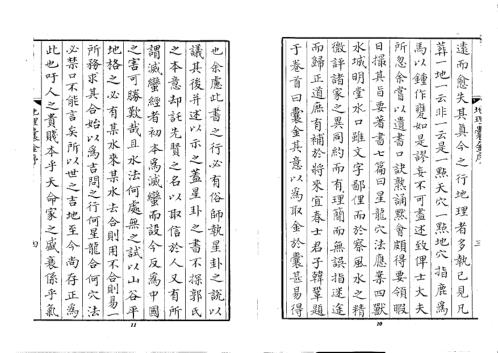 地理囊金序
三
遠而愈失其真今之行地理者多執己見凡
葬一地一云非一云是一點天穴一點地穴指鹿為
馬以鍾作甕如是謬妄不可盡述俾士大夫
所忽余嘗以遺書口訣熟誦默會頗得要領暇
日撮其旨要著書七篇曰星龍穴法應案四獸
水城明堂水口雖文字鄙俚而於察風水之精
微評諸家之異同約而有理簡而無誤指迷途
而歸正道庶有補於將來宜春士君子韓鞏題
于卷首曰囊金其意以為取金於囊甚易得
10
也余慮此書之行必有俗師執星卦之說以
議其後并述以示之蓋星卦之書不探郭氏
之本意却託先賢之名以取信於人又有所
謂滅蠻經者初本為滅蠻而設今反為中國
之害可勝歎哉且水法何處無之試以山谷平
地格之必有某水來某水去合則用不合則易一
所務求其合始以為吉問之行何星龍合何穴法
必禁口不能言矣所以世之吉地至今尚存正為
此也吁人之貴賤本乎天命家之盛衰係乎氣
地理囊金序
四
11